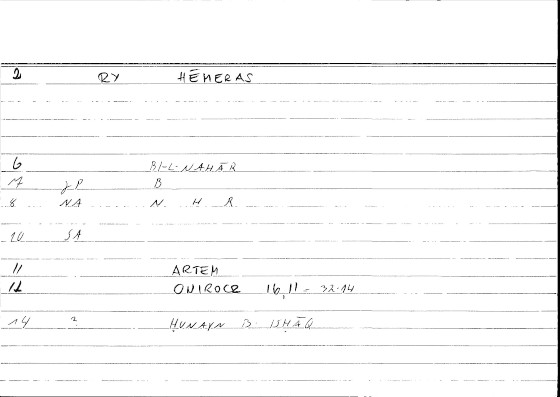 2 RY HĒMERAS
6 BI-L-NAHĀR
7 JP B
8 NA N H R
10 SA
11 ARTEM
12 ONIROCR 16,11 - 32.14
14 ? ḤUNAYN B. ISḤĀQ